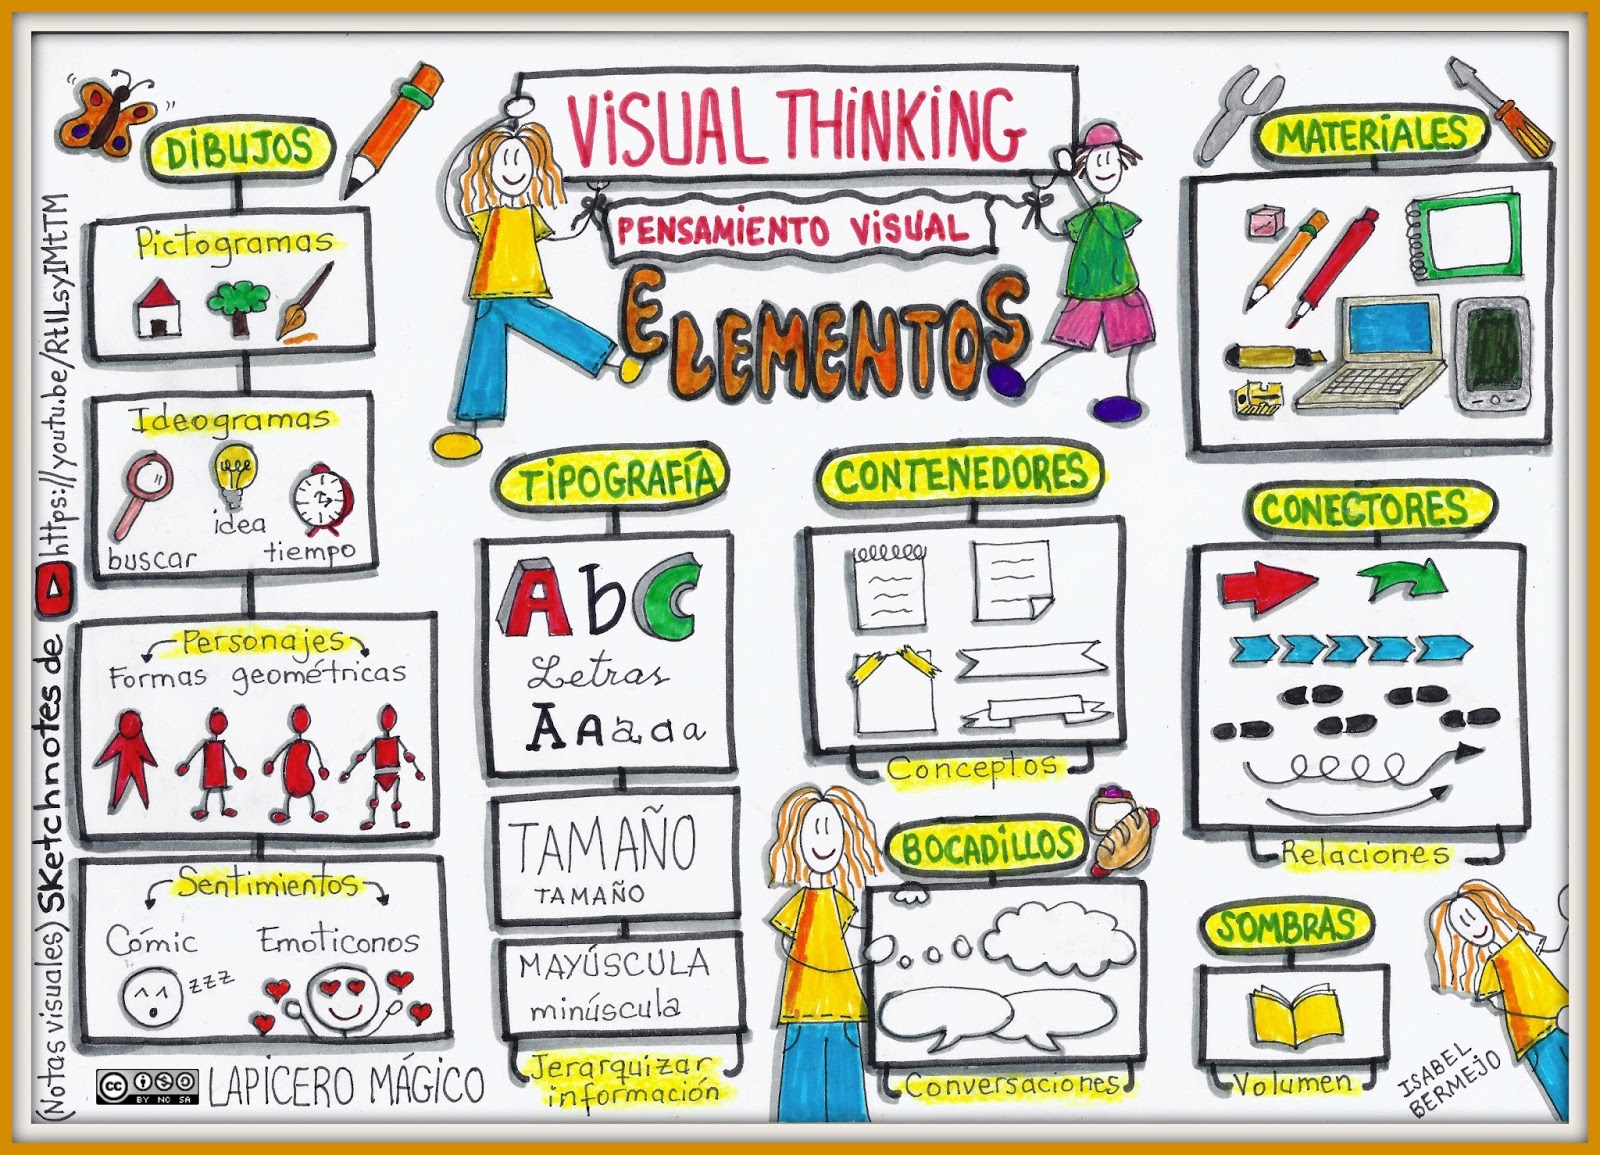 VISUAL THINKING
PENSAMIENTO VISUAL
ELEMENTOS
DIBUJOS
Pictogramas
Ideogramas
buscar
idea
tiempo
Personajes
Formas geométricas
Sentimientos
Cómic
Emoticonos
zzz
TIPOGRAFÍA
AbC
Letras
AAaaa
TAMAÑO
TAMAÑO
MAYÚSCULA
minúscula
Jerarquizar
información
CONTENEDORES
Conceptos
BOCADILLOS
Conversaciones
MATERIALES
CONECTORES
Relaciones
SOMBRAS
Volumen
(Notas visuales) SKetchnotes de https://youtu.be/RtlLsyIMtTM
cc BY NC SA
LAPICERO MÁGICO
ISABEL
BERMEJO